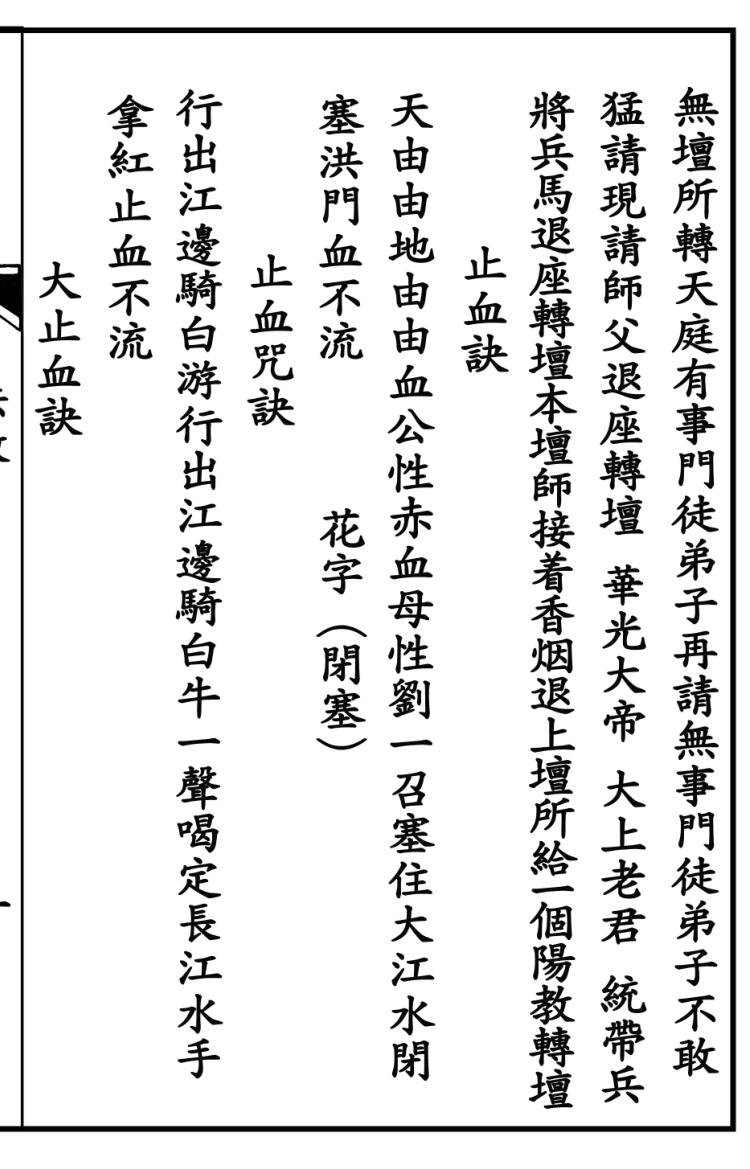 無壇所轉天庭有事門徒弟子再請無事門徒弟子不敢
猛請現請師父退座轉壇 華光大帝 大上老君 統帶兵
將兵馬退座轉壇本壇師接着香烟退上壇所給一個陽教轉壇
止血訣
天由由地由由血公性赤血母性劉一召塞住大江水閉
塞洪門血不流 花字（閉塞）
止血咒訣
行出江邊騎白游行出江邊騎白牛一聲喝定長江水手
拿紅止血不流
大止血訣